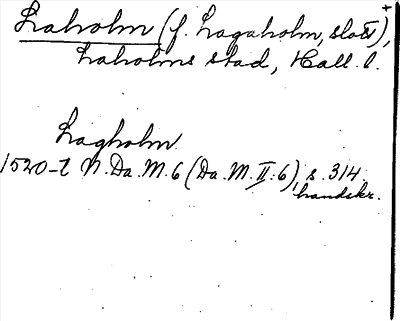 Laholm (f. Lagaholm, slott)+,
Laholms stad, Hall. l.
Lagholm
1520-t N. Da. M. 6 (Da. M. II:6), s. 314.
handskr.